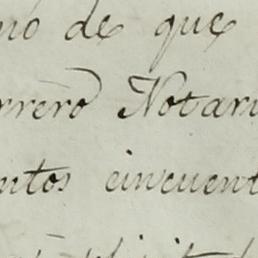 mo de que
rrero Notari
ntos cincuent